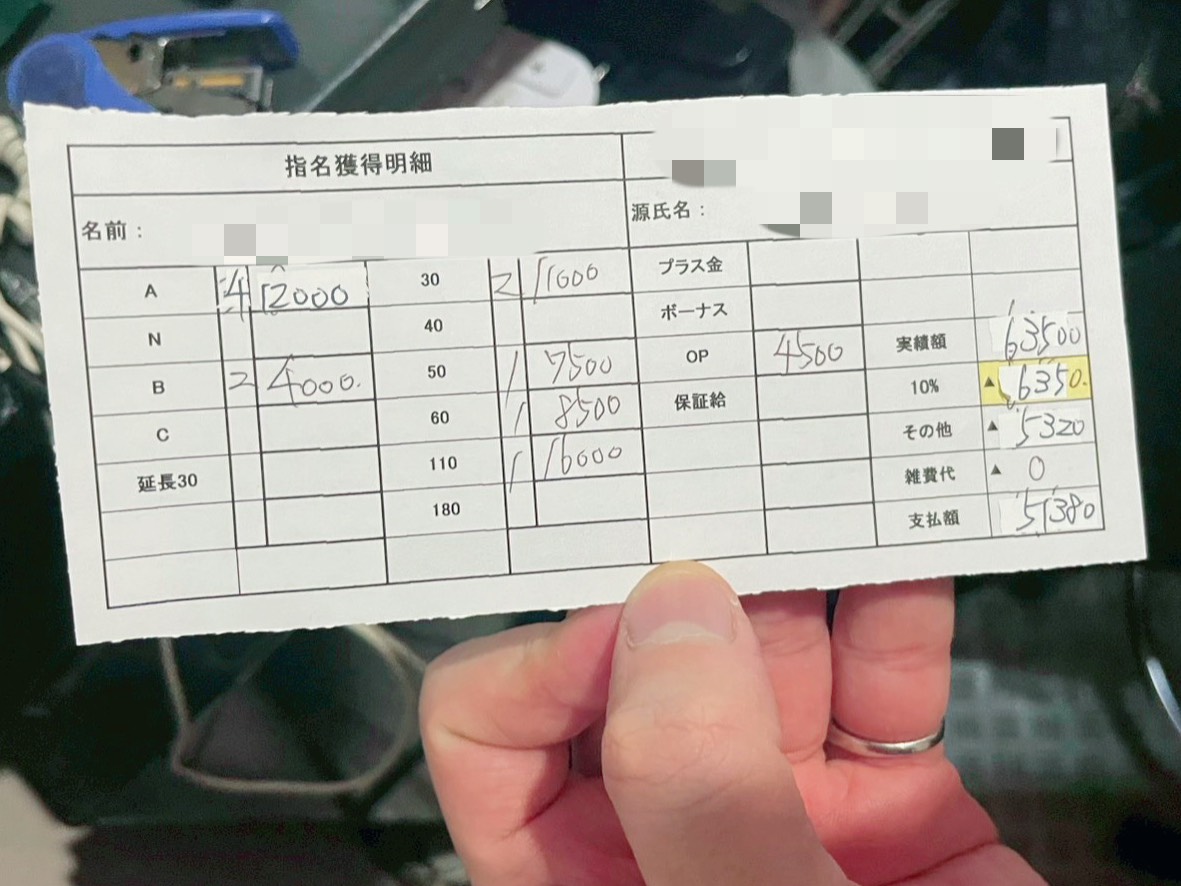 指名獲得明細
名前：
源氏名：
A 4 12000 30 2 11000 プラス金
N 40 ボーナス
B 2 4000. 50 1 7500 OP 4500 実績額 63500
C 60 1 8500 保証給 10% ▲ 6350.
延長30 110 1 16000 その他 ▲ 5320
180 雑費代 ▲ 0
支払額 51380